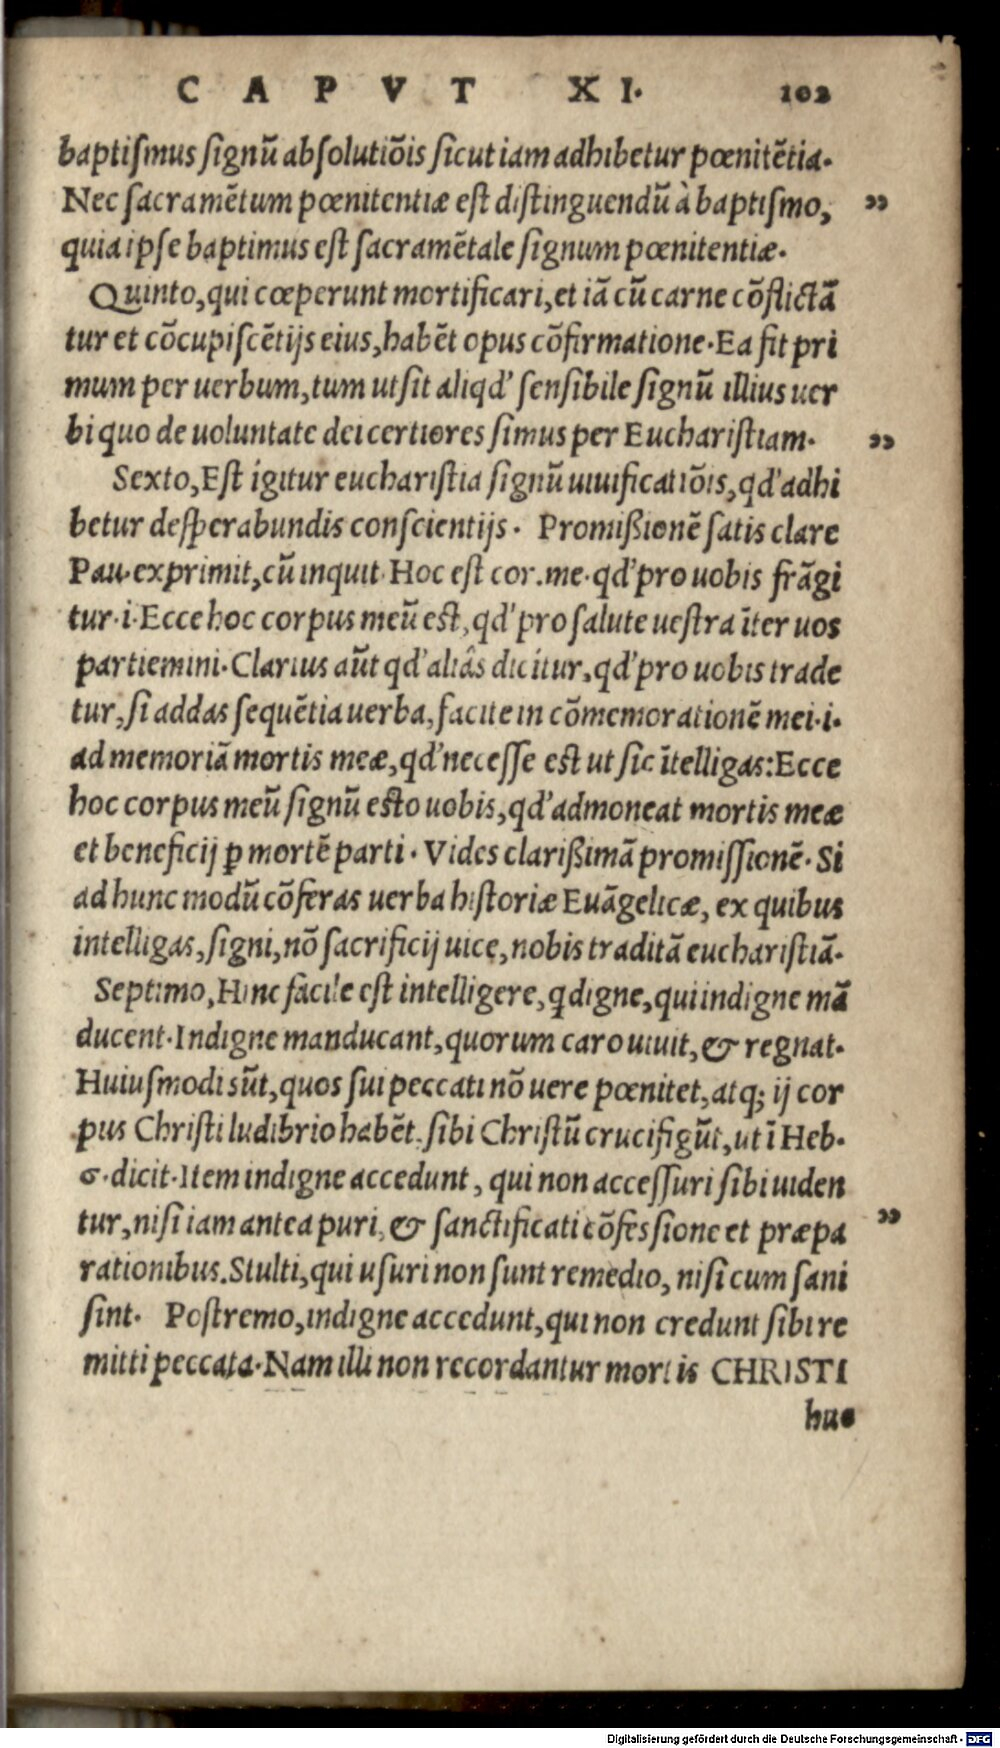 CAPVT XI. 102
baptiſmus ſignũ abſolutiõis ſicut iam adhibetur pœnitẽtia.
Nec ſacramẽtum pœnitentiæ eſt diſtinguendũ à baptiſmo, „
quia ipſe baptimus eſt ſacramẽtale ſignum pœnitentiæ.
Quinto, qui cœperunt mortificari, et iã cũ carne cõflictã
tur et cõcupiſcẽtijs eius, habẽt opus cõfirmatione. Ea fit pri
mum per uerbum, tum ut ſit aliqd' ſenſibile ſignũ illius uer
bi quo de uoluntate dei certiores ſimus per Euchariſtiam. „
Sexto, Eſt igitur euchariſtia ſignũ uiuificatiõis, qd' adhi
betur deſperabundis conſcientijs. Promißionẽ ſatis clare
Pau. exprimit, cũ inquit. Hoc eſt cor. me. qd' pro uobis frãgi
tur. i. Ecce hoc corpus meũ eſt, qd' pro ſalute ueſtra ĩter uos
partiemini. Clarius aũt qd' aliâs dicitur, qd' pro uobis trade
tur, ſi addas ſequẽtia uerba, facite in cõmemorationẽ mei. i.
ad memoriã mortis meæ, qd' neceſſe eſt ut ſic ĩtelligas: Ecce
hoc corpus meũ ſignũ eſto uobis, qd' admoneat mortis meæ
et beneficij ꝑ mortẽ parti. Vides clarißimã promiſſionẽ. Si
ad hunc modũ cõferas uerba hiſtoriæ Euãgelicæ, ex quibus
intelligas, ſigni, nõ ſacrificij uice, nobis traditã euchariſtiã.
Septimo, Hinc facile eſt intelligere, q digne, qui indigne mã
ducent. Indigne manducant, quorum caro uiuit, & regnat.
Huiuſmodi sũt, quos ſui peccati nõ uere pœnitet, atq; ij cor
pus Chriſti ludibrio habẽt. ſibi Chriſtũ crucifigũt, ut ĩ Heb.
6. dicit. Item indigne accedunt, qui non acceſſuri ſibi uiden
tur, niſi iam antea puri, & ſanctificati cõfeſsione et præpa „
rationibus. Stulti, qui uſuri non ſunt remedio, niſi cum ſani
ſint. Poſtremo, indigne accedunt, qui non credunt ſibi re
mitti peccata. Nam illi non recordantur mortis CHRISTI
huc
Digitalisierung gefördert durch die Deutsche Forschungsgemeinschaft - DFG